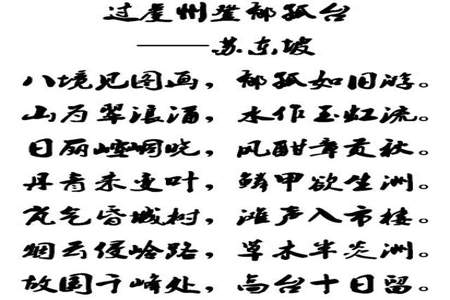 过虔州登郁孤台
——苏东坡
八境见图画，郁孤如旧游。
山为翠浪涌，水作玉虹流。
日丽崆峒晓，风酣章贡秋。
丹青未变叶，鳞甲欲生洲。
岚气昏城树，滩声入市楼。
烟云侵岭路，草木半炎洲。
故国千峰处，高台十日留。